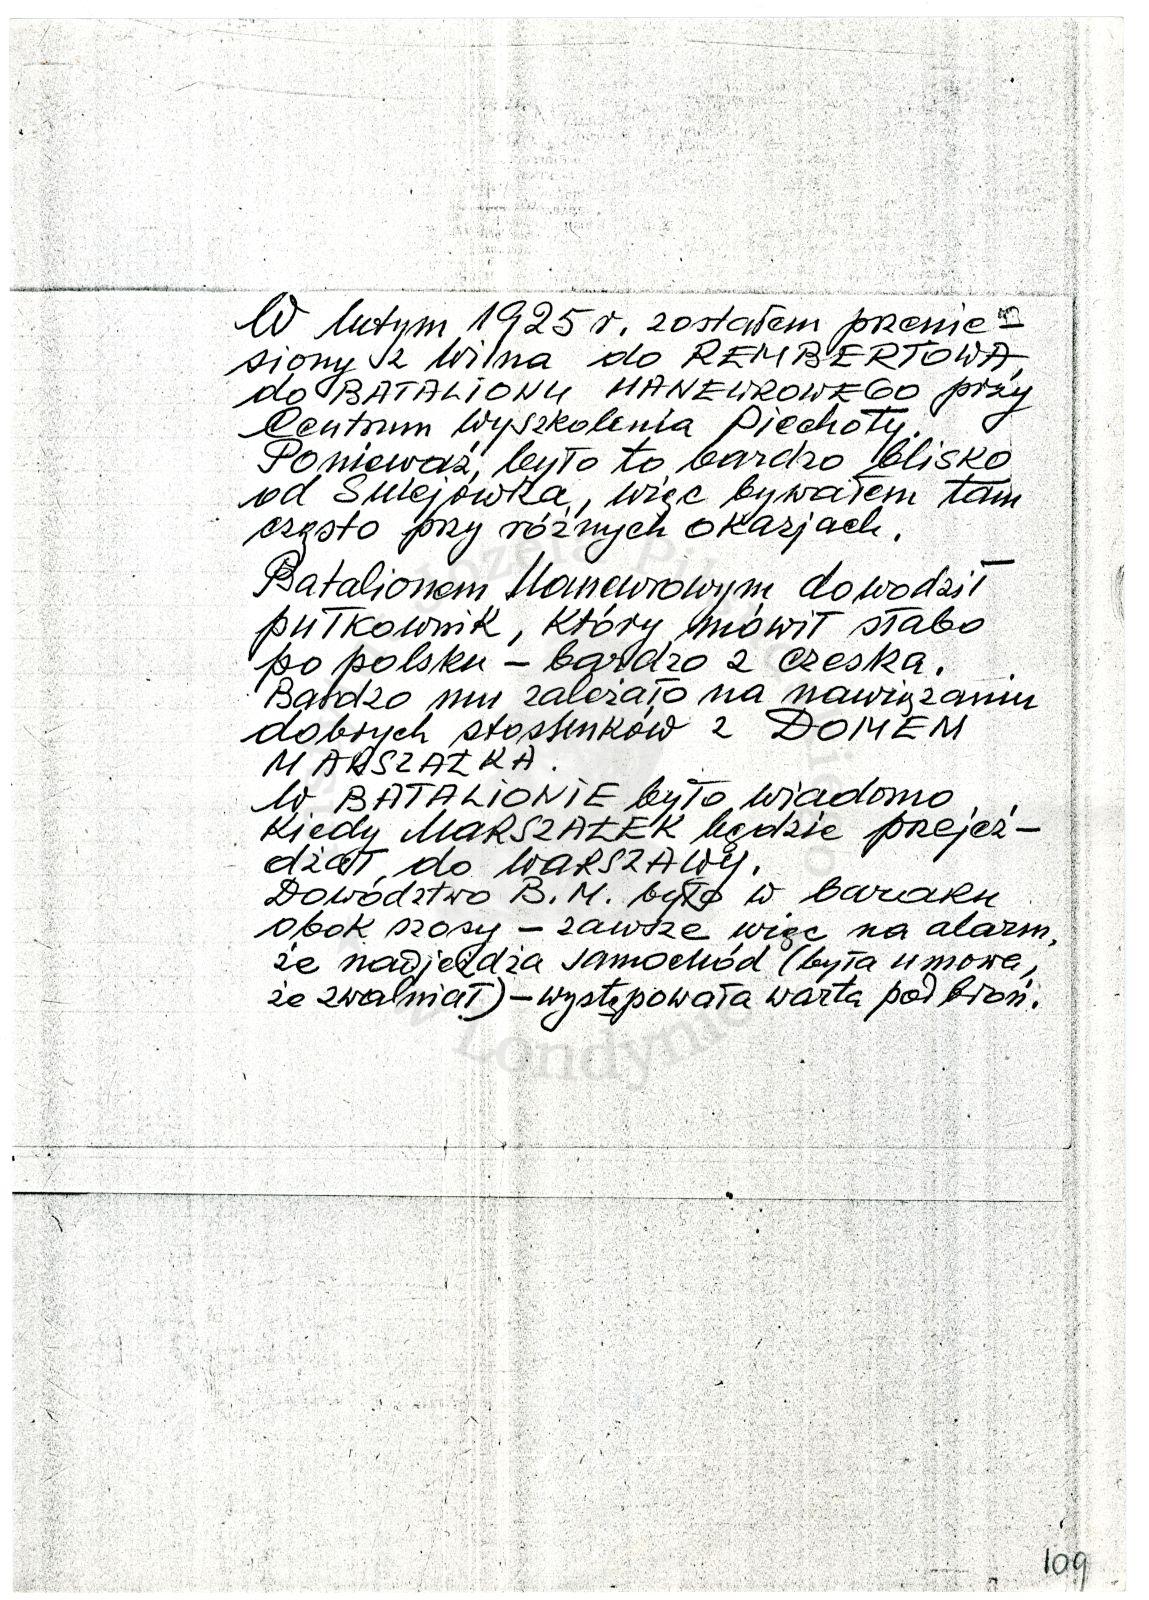 W lutym 1925 r. zostałem przenie-
siony z Wilna do REMBERTOWA,
do BATALIONU MANEWROWEGO przy
Centrum Wyszkolenia Piechoty.
Ponieważ, było to bardzo blisko
od Sulejówka, więc bywałem tam
często przy różnych okazjach.
Batalionem Manewrowym dowodził
pułkownik, który mówił słabo
po polsku – bardzo z czeska.
Bardzo mu zależało na nawiązaniu
dobrych stosunków z DOMEM
MARSZAŁKA.
W BATALIONIE było wiadomo,
kiedy MARSZAŁEK będzie przejeż-
dżał do WARSZAWY.
Dowództwo B.M. było w baraku
obok szosy – zawsze więc na alarm,
że nadjeżdża samochód (była umowa,
że zwalniał) – występowała warta pod broń.
Londynie
109